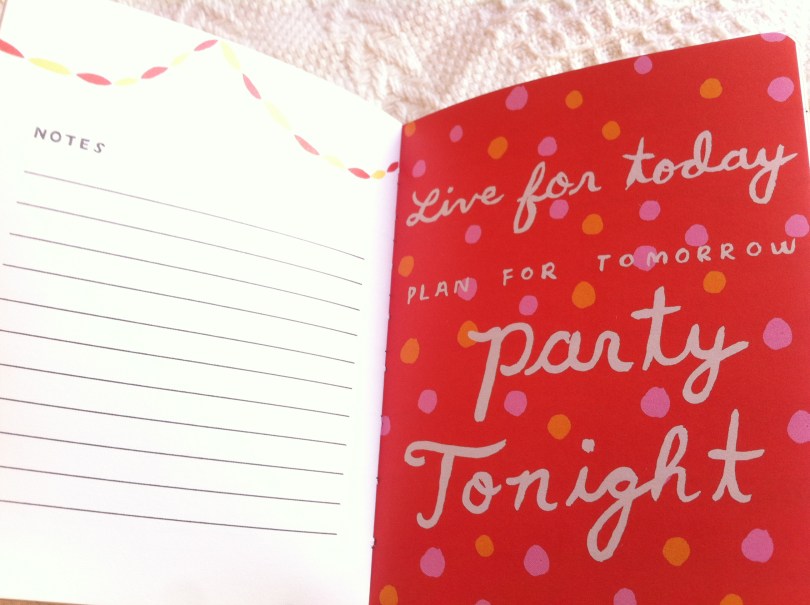 NOTES
Live for today
PLAN FOR TOMORROW
Party
Tonight